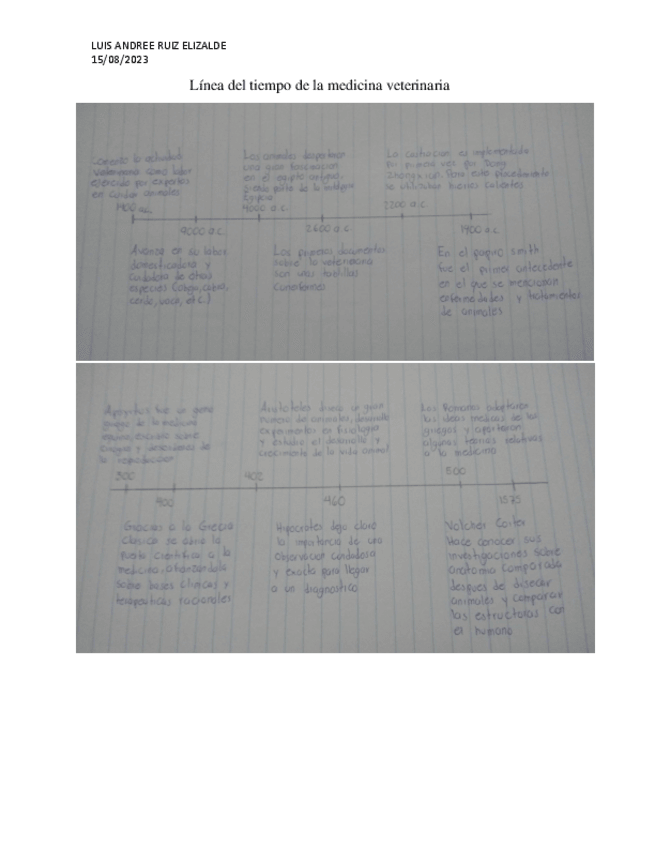 LUIS ANDREE RUIZ ELIZALDE
15/08/2023
Línea del tiempo de la medicina veterinaria
Comenzo la actividad
veterinaria como labor
ejercida por expertos
en cuidar animales
a.c.
Los animales despertaron
una gran fascinacion
en el egipto antiguo,
Egipcia
4000 a.c.
La castracion es implementada
por primera vez por
Para este procedimiento
se utilizaban hierros calientes
2200 a.c.
9000 a.c.
2600 a.c.
1900 a.c.
Avanza en su labor
domesticadora y
cuidadora de otras
especies (oveja, cabra,
cerdo, vaca, etc.)
Los primeros documentos
sobre la veterinaria
son unas tablillas
cuneiformes
En el papiro smith
fue el primer antecedente
en el que se mencionan
enfermedades y tratamientos
de animales
Apsyrtus fue un genio
griego de la medicina
equina, escribio sobre
cirugia y desordenes de
la reproduccion
300
Aristoteles diseco un gran
numero de animales, desarrollo
experimentos en fisiologia
y estudio el desarrollo y
crecimiento de la vida animal
402
Los Romanos adoptaron
las ideas medicas de los
griegos y aportaron
algunos temas relativos
a la medicina
500
400
460
1575
Gracias a la Grecia
Clasica se abrio la
puerta cientifica a la
medicina, afianzandola
sobre bases clinicas y
terapeuticas racionales
Hipocrates dejo claro
la importancia de una
observacion cuidadosa
y exacta para llegar
a un diagnostico
Volcher Coiter
hace conocer sus
investigaciones sobre
anatomia comparada
despues de disecar
animales y comparar
las estructuras con
el humano